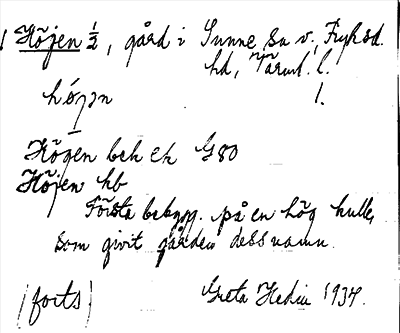 Höjen ½, gård i Sunne sn v., Fryksd.
hd, Värml. l.
Högen beh ek G80
Höjen hb
Första bebygg. på en hög kulle,
som givit gården dess namn.
(forts) Greta Hedin 1934.